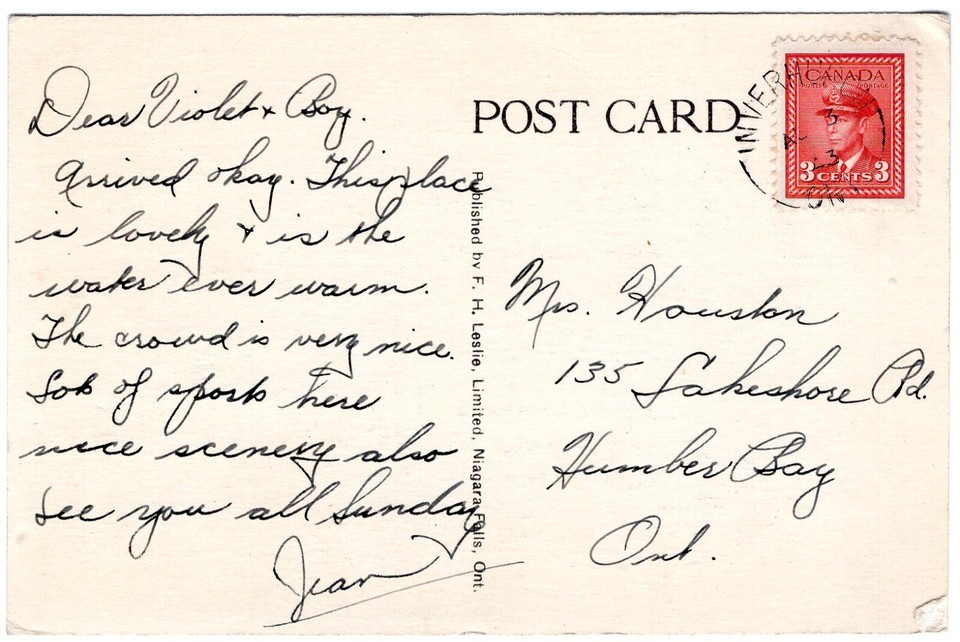 Dear Violet + Boy.
Arrived okay. This place
is lovely + is the
water ever warm.
The crowd is very nice.
Lots of sports here
nice scenery also
See you all Sunday
Jean
Published by F. H. Leslie, Limited, Niagara Falls, Ont.
POST CARD
CANADA
POSTES POSTAGE
3 CENTS 3
ONT
Mrs. Houston
135 Lakeshore Rd.
Humber Bay
Ont.